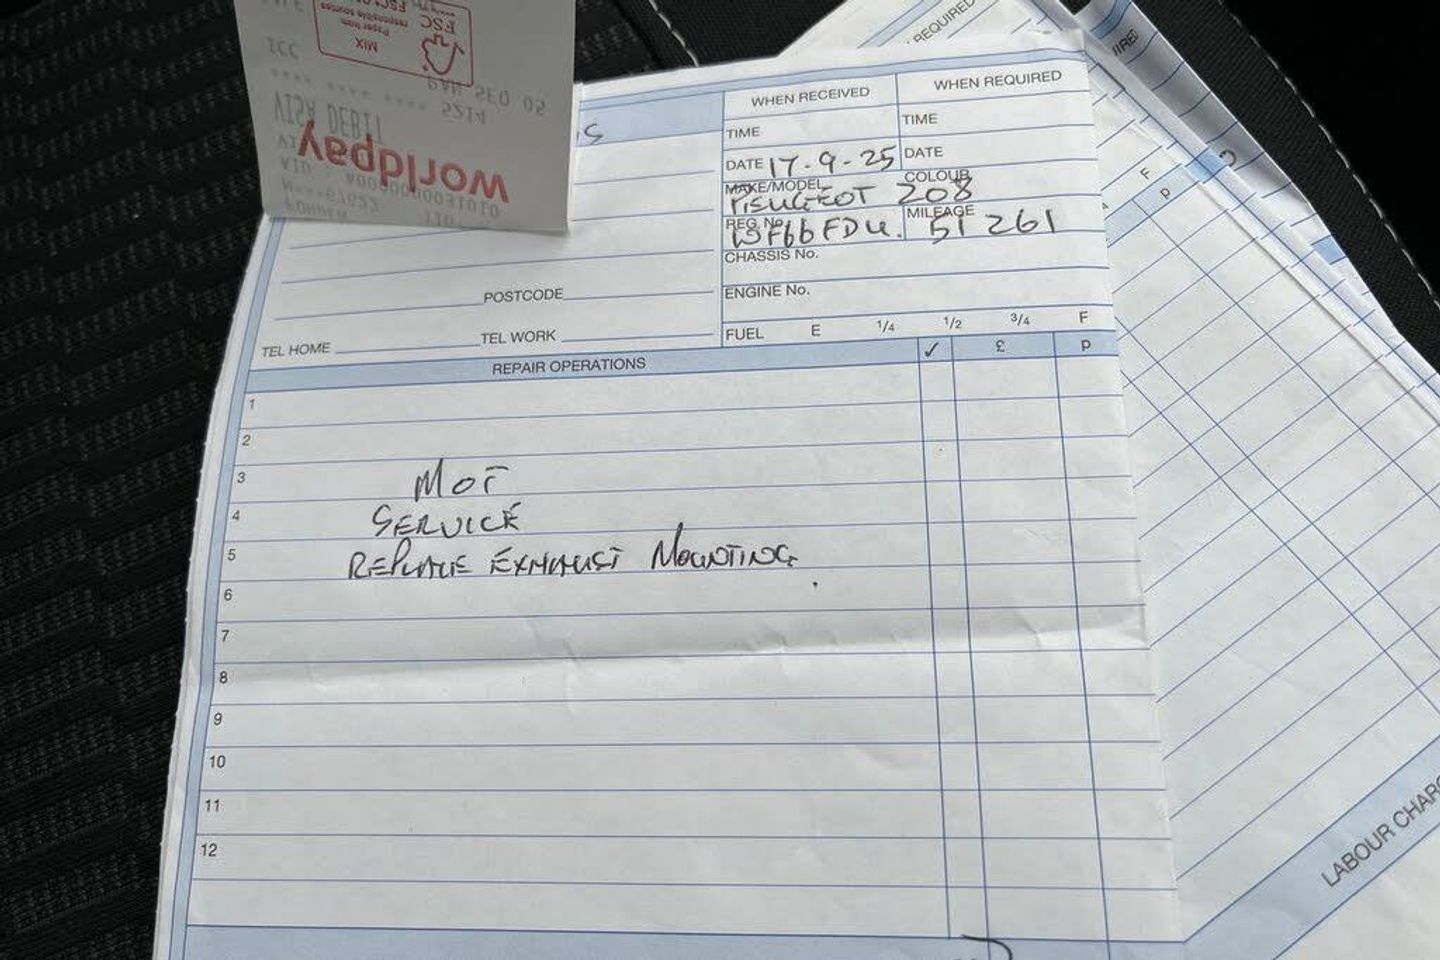 MIX
Paper from
responsible sources
FSC
ICC
PAN SEQ 05
**** **** **** 5214
VISA DEBIT
worldpay
AID : A0000000031010
REQUIRED
WHEN RECEIVED
WHEN REQUIRED
TIME
TIME
DATE 17-9-25
DATE
MAKE/MODEL PEUGEOT 208
COLOUR
REG. No. WF66FDU.
MILEAGE 51261
CHASSIS No.
ENGINE No.
POSTCODE
TEL HOME
TEL WORK
FUEL E 1/4 1/2 3/4 F
REPAIR OPERATIONS ✓ £ p
1
2
3 MOT
4 SERVICE
5 REPLACE EXHAUST MOUNTING.
6
7
8
9
10
11
12
F
p